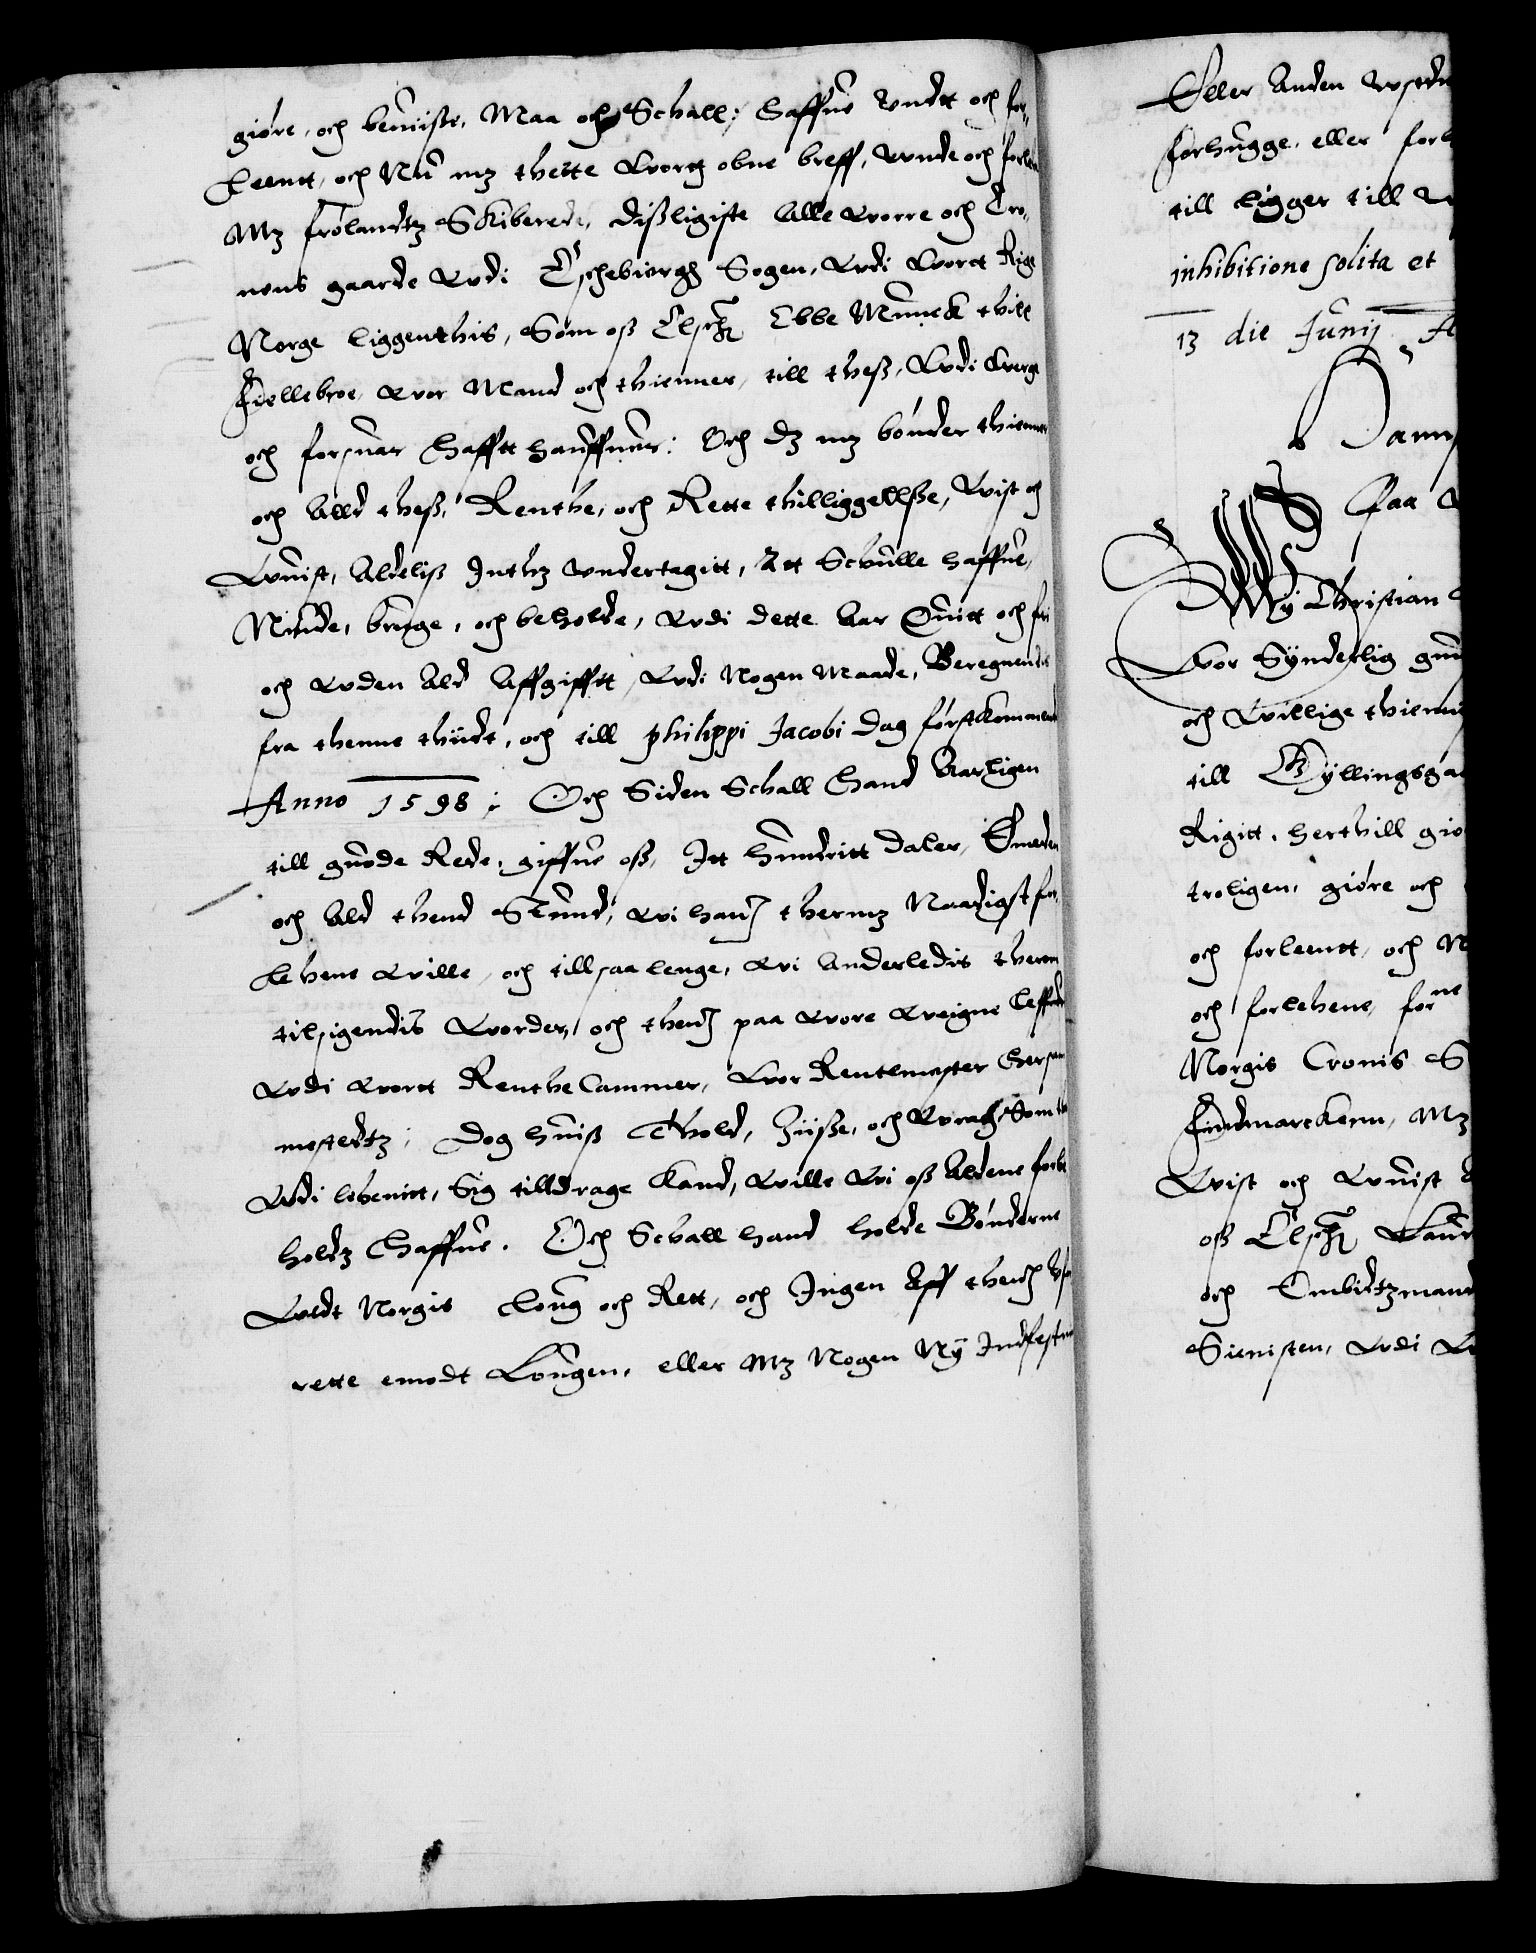 giøre, och beuiise, Maa och Schall, haffue Undtt och for,
leentt, och Nu mz thette Vortz obne breff, unde och forlene
Mz frølandtz Skiberede, disligiste Alle Vorre och Cro,
nens gaarde Udi Eschebiergh Sogen, Udi Vort Rige
Norge liggenthis, Som oss Elschel Ebbe Munck thill
Fiellebroe, Vor Mand och thienner, till thess, Udi Verge
och forsuar hafftt haffuer: Och dz mz bønder thienner
och Alld thess, Renthe, och Rette thilliggellsse, Vist och
Uuist, Aldeliss Inthz undertagitt, Att Schulle haffue,
Niude, bruge, och beholde, Udi dette Aar Quitt och fri
och Uden Ald Affgifftt, Udi Nogen Maade, Beregnendis
fra thenne thiidt, och till philippi Jacobi dag førstkommend
Anno 1598; Och Siden Schall hand Aarligen
till guode Rede, giffue oss, Itt hundritt daler,
och Ald thend Stund, Vi hannem thermz Naadigst for,
lehene Ville, och till saa lenge, Vi Anderledis therom
tilsigendis Vorder, och thennem paa Vore Veigne leffuere
Udi Vortt Renthe Cammer, Vor Rentemester
mestedtz; dog huiss Thold, Siisse, och Vrag Som ther
Udi lehenitt, Sig tilldrage Kand, Ville Vi oss Aldene forbe
holdz haffue. Och Schall hand holde Bønderne
Vedt Norgis Loug och Rett, och Ingen Aff thennem Ufor
rette emodt Lougen, eller Mz Nogen Ny Indfestning
Eller Anden
forhugge, eller forh
till ligger till
inhibitione solita et
13 die Junij A
Wy Christian
Vor Synderlig gun
och Villige thienn
till Gyllingsga
Rigitt, herthill giø
troligen, giøre och
och forleentt, och N
och forlehene, forne
Norgis Cronis S
Findmarckenn, Mz
Vist och Uuist
oss Elschel
och Embidtzmand
Sienisten, Udi